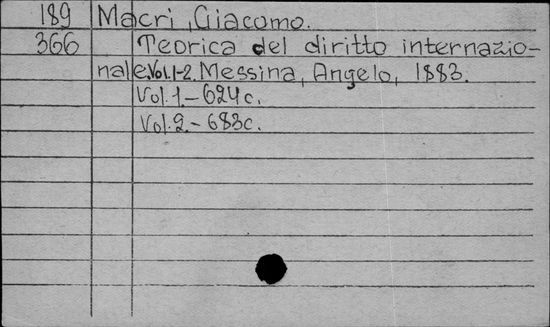 189 Macri, Giacomo.
366 Teorica del diritto internazio-
nale. Vol. 1-2. Messina, Angelo, 1883.
Vol. 1. - 624 c.
Vol. 2. - 683 c.